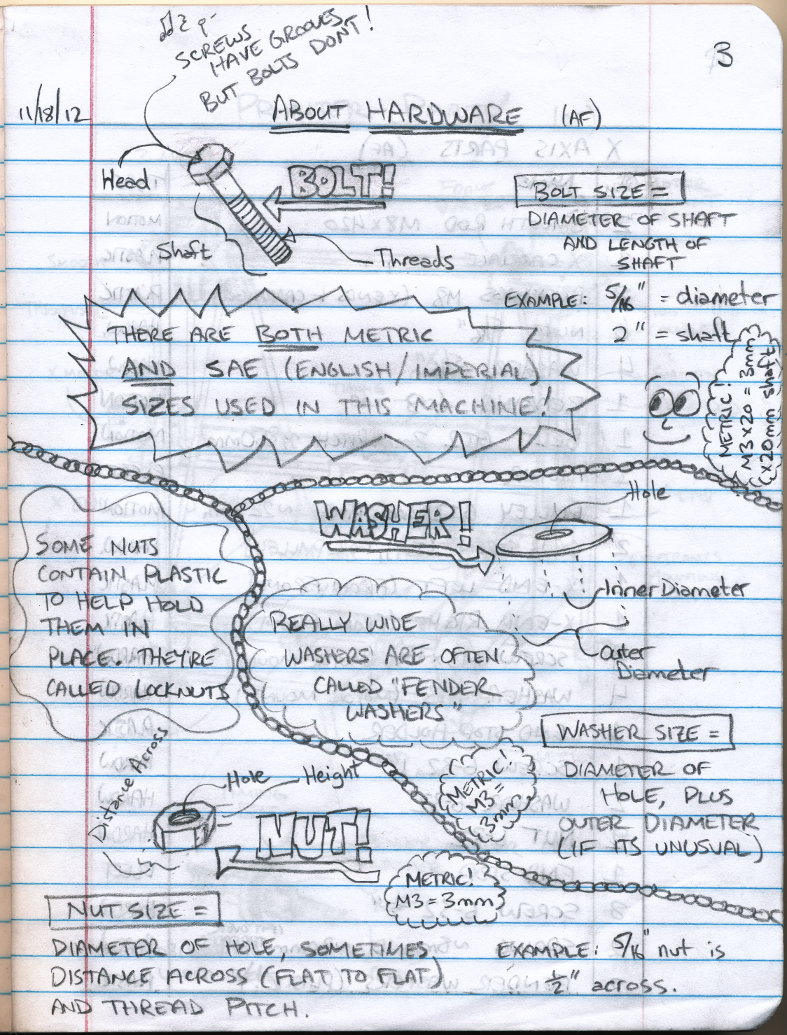 SCREWS
HAVE GROOVES,
BUT BOLTS DON'T!
3
11/18/12
ABOUT HARDWARE (AF)
Head
BOLT!
Shaft
Threads
BOLT SIZE =
DIAMETER OF SHAFT
AND LENGTH OF
SHAFT
EXAMPLE: 5/16" = diameter
2" = shaft
METRIC!
M3x20 = 3mm
x20mm shaft
THERE ARE BOTH METRIC
AND SAE (ENGLISH/IMPERIAL)
SIZES USED IN THIS MACHINE!
SOME NUTS
CONTAIN PLASTIC
TO HELP HOLD
THEM IN
PLACE. THEY'RE
CALLED LOCKNUTS
WASHER!
Hole
Inner Diameter
Outer
Diameter
REALLY WIDE
WASHERS ARE OFTEN
CALLED "FENDER
WASHERS"
WASHER SIZE =
DIAMETER OF
HOLE, PLUS
OUTER DIAMETER
(IF ITS UNUSUAL)
METRIC!
M3 =
3mm
Distance Across
Hole
Height
NUT!
METRIC!
M3 = 3mm
NUT SIZE =
DIAMETER OF HOLE, SOMETIMES
DISTANCE ACROSS (FLAT TO FLAT)
AND THREAD PITCH.
EXAMPLE: 5/16" nut is
1/2" across.